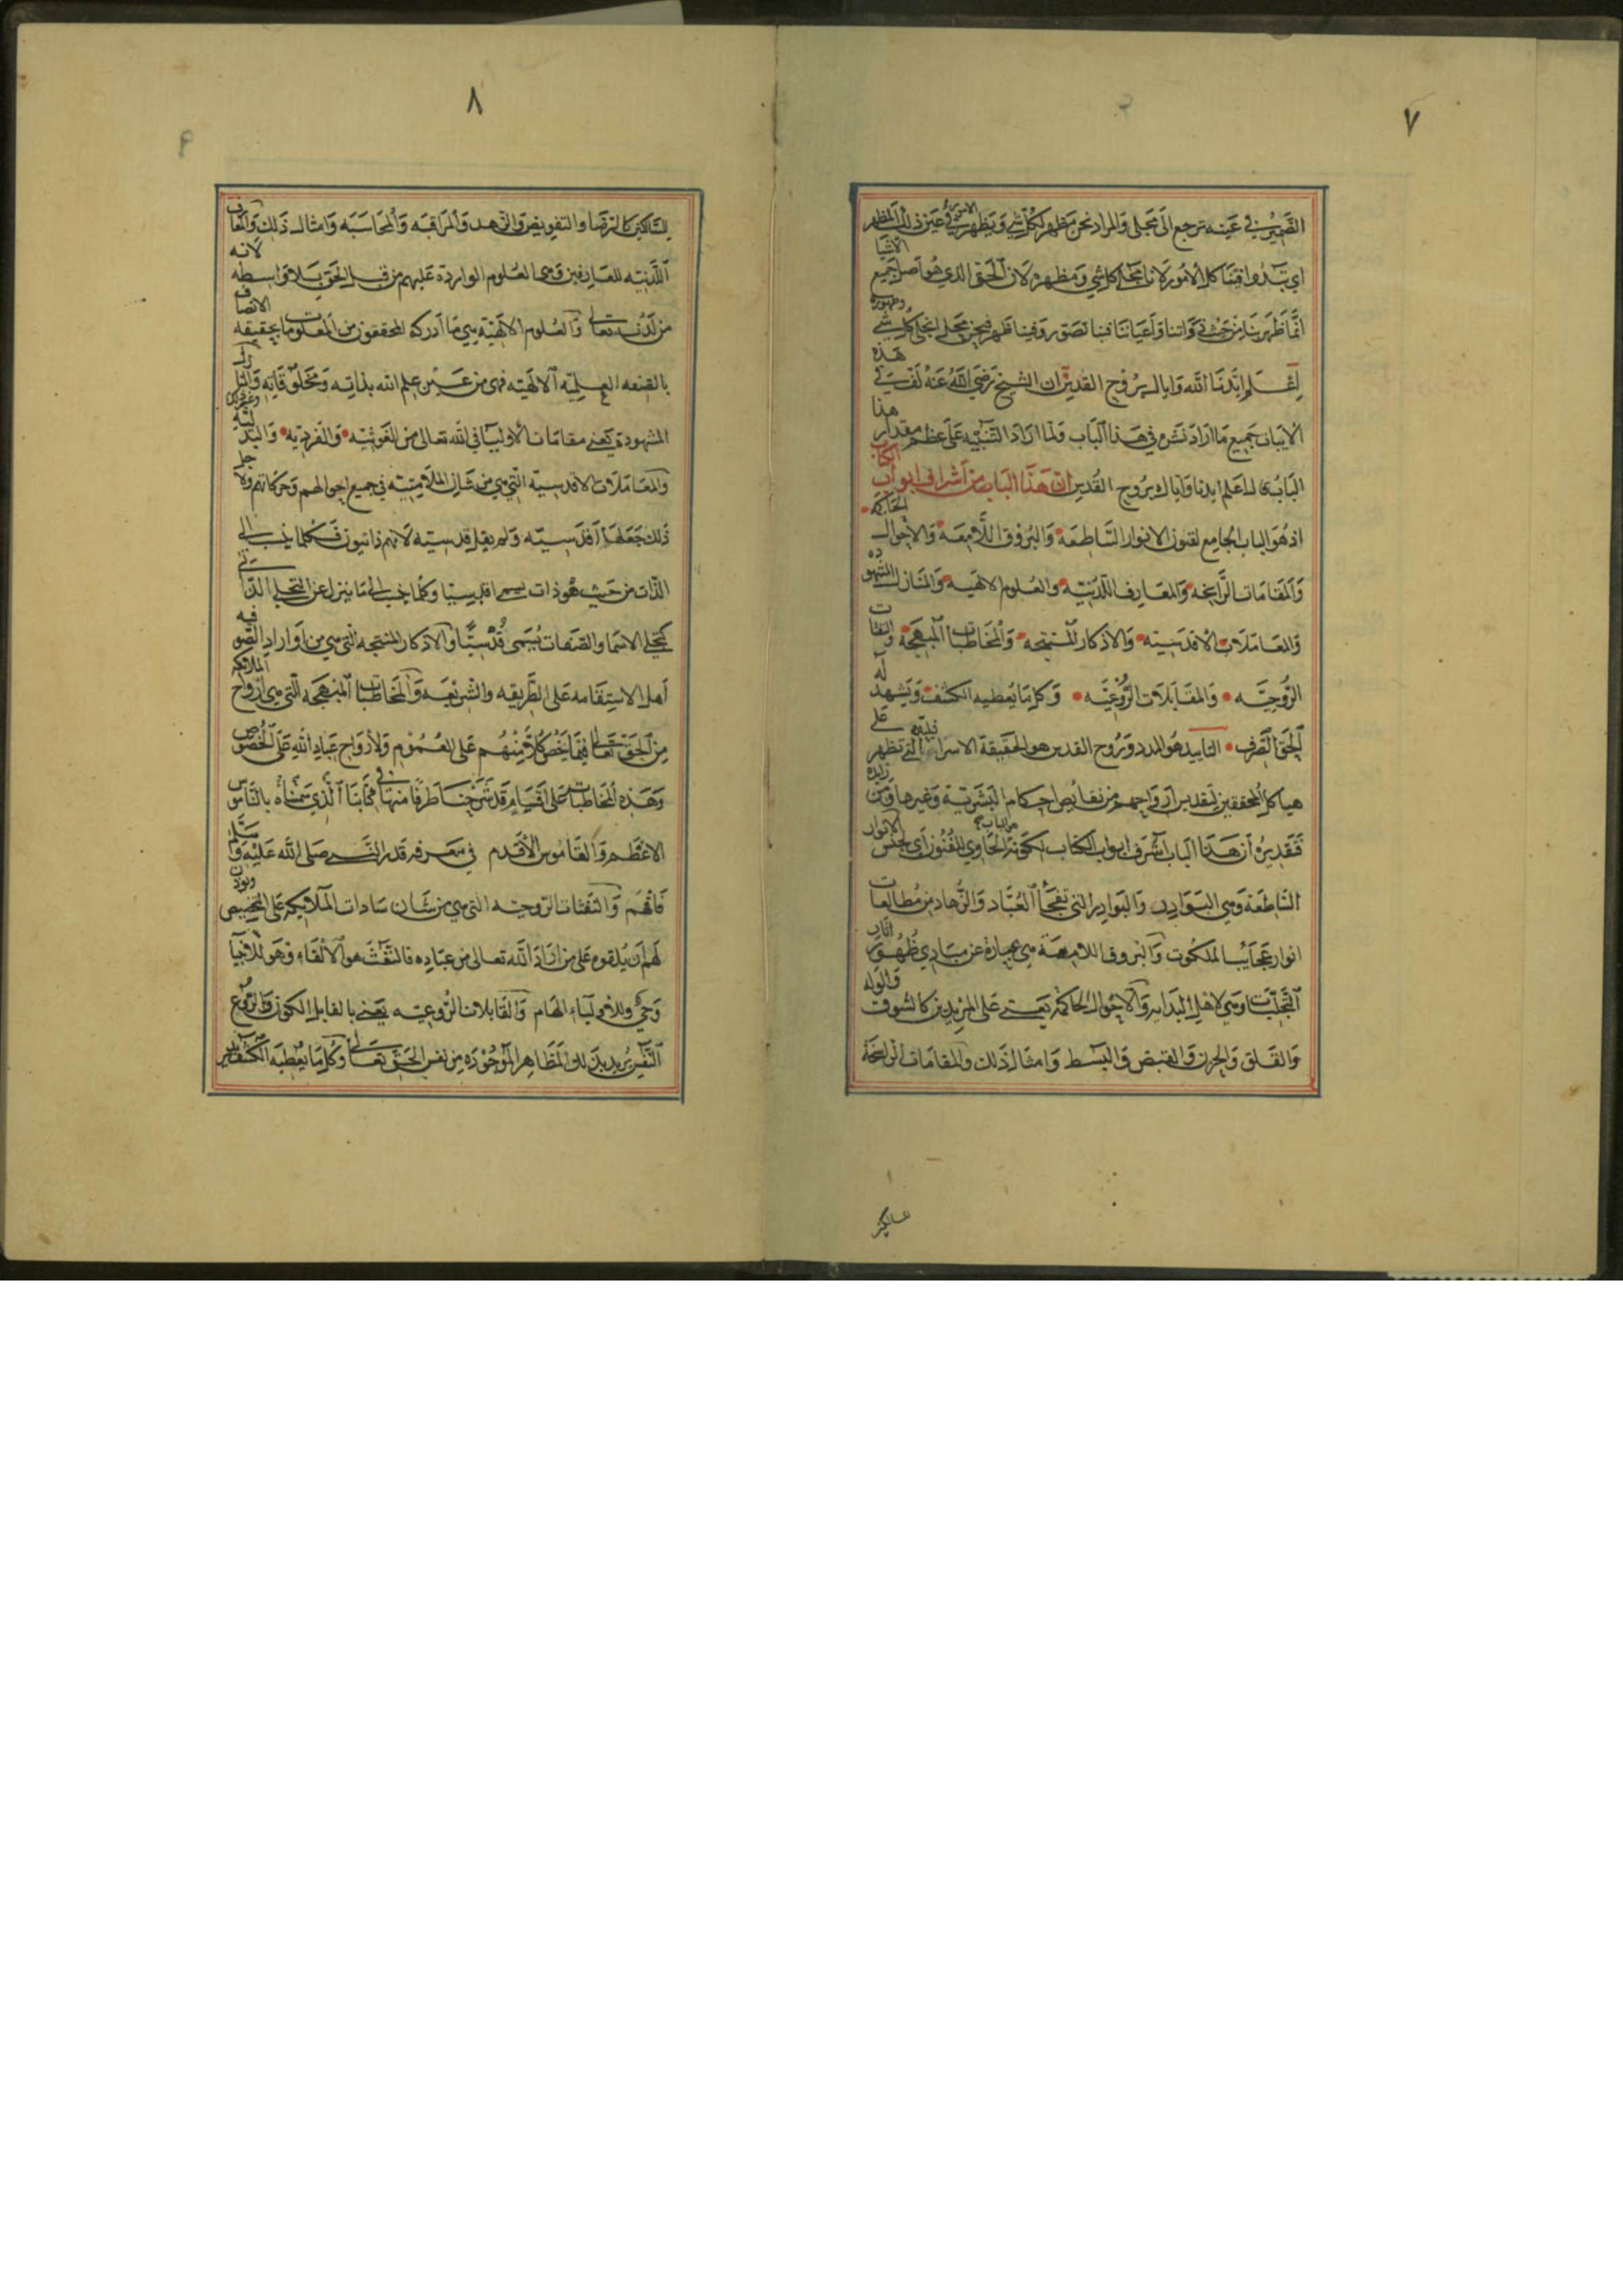 ٧
الضمير في عينه ترجع الى مجلى والمراد نحن مظهر لكل شي ويظهر في عين ذلك المظهر
اي تبدوا فينا كل الامور لاننا مجلى كل شي ومظهره لان الحق الذي هو اصل جميع الاشيا
انما ظهر بنا من حيث ذواتنا واعياننا فبنا تصور وفينا ظهر فنحن مجلى لتجلى كل شي وظهوره
اعلم ايدنا الله واياك بروح القدس ان الشيخ رضي الله عنه لف في هذه
الابيات جميع ما اراد نشره في هذا الباب ولما اراد التنبيه على عظم مقدار هذا
الباب قال اعلم ايدنا واياك بروح القدس ان هذا الباب من اشراف ابواب الكتاب
اذ هو الباب الجامع لفنون الانوار الساطعة والبروق اللامعة والاحوال الحاكمة
والمقامات الراسخة والمعارف اللدنية والعلوم الالهية والمنازل المشهودة
والمعاملات الاقدسية والاذكار المنتجة والمخاطبات المبهجة والنفثات
الروحية والمقابلات الروعية وكل ما يعطيه الكشف ويشهد له
الحق الصرف التاييد هو المدد وروح القدس هو الحقيقة الاسرا التي تظهر على
هياكل المحققين لتقديس ارواحهم من نقائص احكام البشرية وغيرها
فتقديره ان هذا الباب اشرف ابواب الكتاب لكونه الحاوي للفنون اي لجنس الانوار
الساطعة وهي البواده والبوادر التي تفجأ العباد والزهاد من مطالعات
انوار عجائب الملكوت والبروق اللامعة هي عبارة عن مبادي ظهور
التجليات وهي لاهل البداية والاحوال الحاكمة يعني على المريدين كالشوق والوله
والقلق والحزن والقبض والبسط وامثال ذلك والمقامات الراسخة
٨
للسالكين كالرضا والتفويض والزهد والمراقبة والمحاسبة وامثال ذلك والمعارف
اللدنية للعارفين وهي العلوم الواردة عليهم من قبل الحق بلا واسطة لانه
من لدنه تعالى والعلوم الالهية هي ما ادركه المحققون من المعلومات بحقيقة الاتصاف
بالصفة العلمية الالهية فهي من عين علم الله بذاته ومخلوقاته والمنازل
المشهودة يعني مقامات الاوليا في الله تعالى من الغوثية والفردية والبدلية
والمعاملات الاقدسية التي هي من شان الملامتية في جميع احوالهم وحركاتهم ولاجل
ذلك جعلها اقدسية ولم يقل قدسية لانهم ذاتيون فكلما ينسب الى
الذات من حيث هو ذات يسمى اقدسيا وكلما ينسب الى ما ينزل عن التجلي الذاتي
كتجلي الاسما والصفات يسمى قدسيا والاذكار المنتجة التي هي من اوراد الصوفية
اهل الاستقامة على الطريقة والشريعة والمخاطبات المبهجة التي هي لارواح الملائكة
من الحق تعالى فيما يخص كلا منهم على العموم ولارواح عباد الله على الخصوص
وهذه المخاطبات على اقسام قد شرحنا طرفا منها في كتابنا الذي سميناه بالناموس
الاعظم والقاموس الاقدم في معرفة قدر النبي صلى الله عليه وسلم
فافهم والنفثات الروحية التي هي من شان سادات الملائكة على التخصيص
لهم ان يلقوه على من اراد الله تعالى من عباده فالنفث هو الالقاء وهو للانبيا
وحي وللاولياء الهام والمقابلات الروعية يعني بالمقابل الكون والروع
النفس يريد بذلك المظاهر الموجودة من نفس الحق تعالى وكل ما يعطيه الكشف